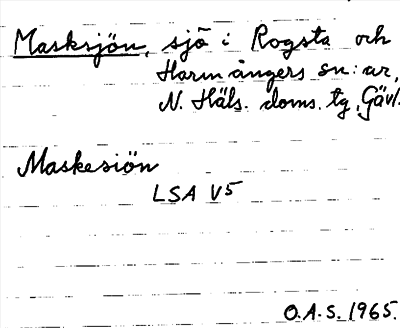 Masksjön, sjö i Rogsta och
Harmångers sn:ar,
N. Häls. doms. tg, Gävl.
Maskesiön
LSA V5
O.A.S. 1965.